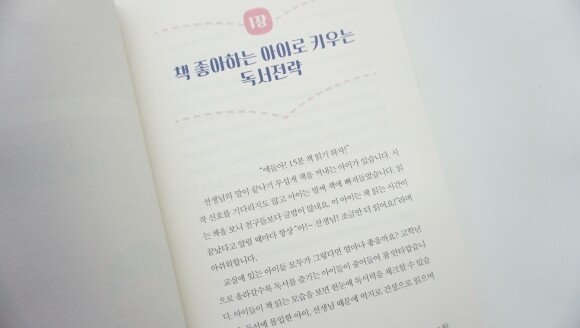 1장
책 좋아하는 아이로 키우는
독서전략
“얘들아! 15분 책 읽기 하자!”
선생님의 말이 끝나기 무섭게 책을 꺼내는 아이가 있습니다. 시
작 신호를 기다리지도 않고 아이는 벌써 책에 빠져들었습니다. 읽
는 책을 보니 친구들보다 글밥이 많네요. 이 아이는 책 읽는 시간이
끝났다고 알릴 때마다 항상 “아!~ 선생님! 조금만 더 읽어요!”라며
아쉬워합니다.
교실에 있는 아이들 모두가 그렇다면 얼마나 좋을까요? 고학년
으로 올라갈수록 독서를 즐기는 아이들이 줄어들어 참 안타깝습니
다. 아이들이 책 읽는 모습을 보면 한눈에 독서력을 체크할 수 있습
독서에 몰입한 아이, 선생님 때문에 억지로 건성으로 읽으며